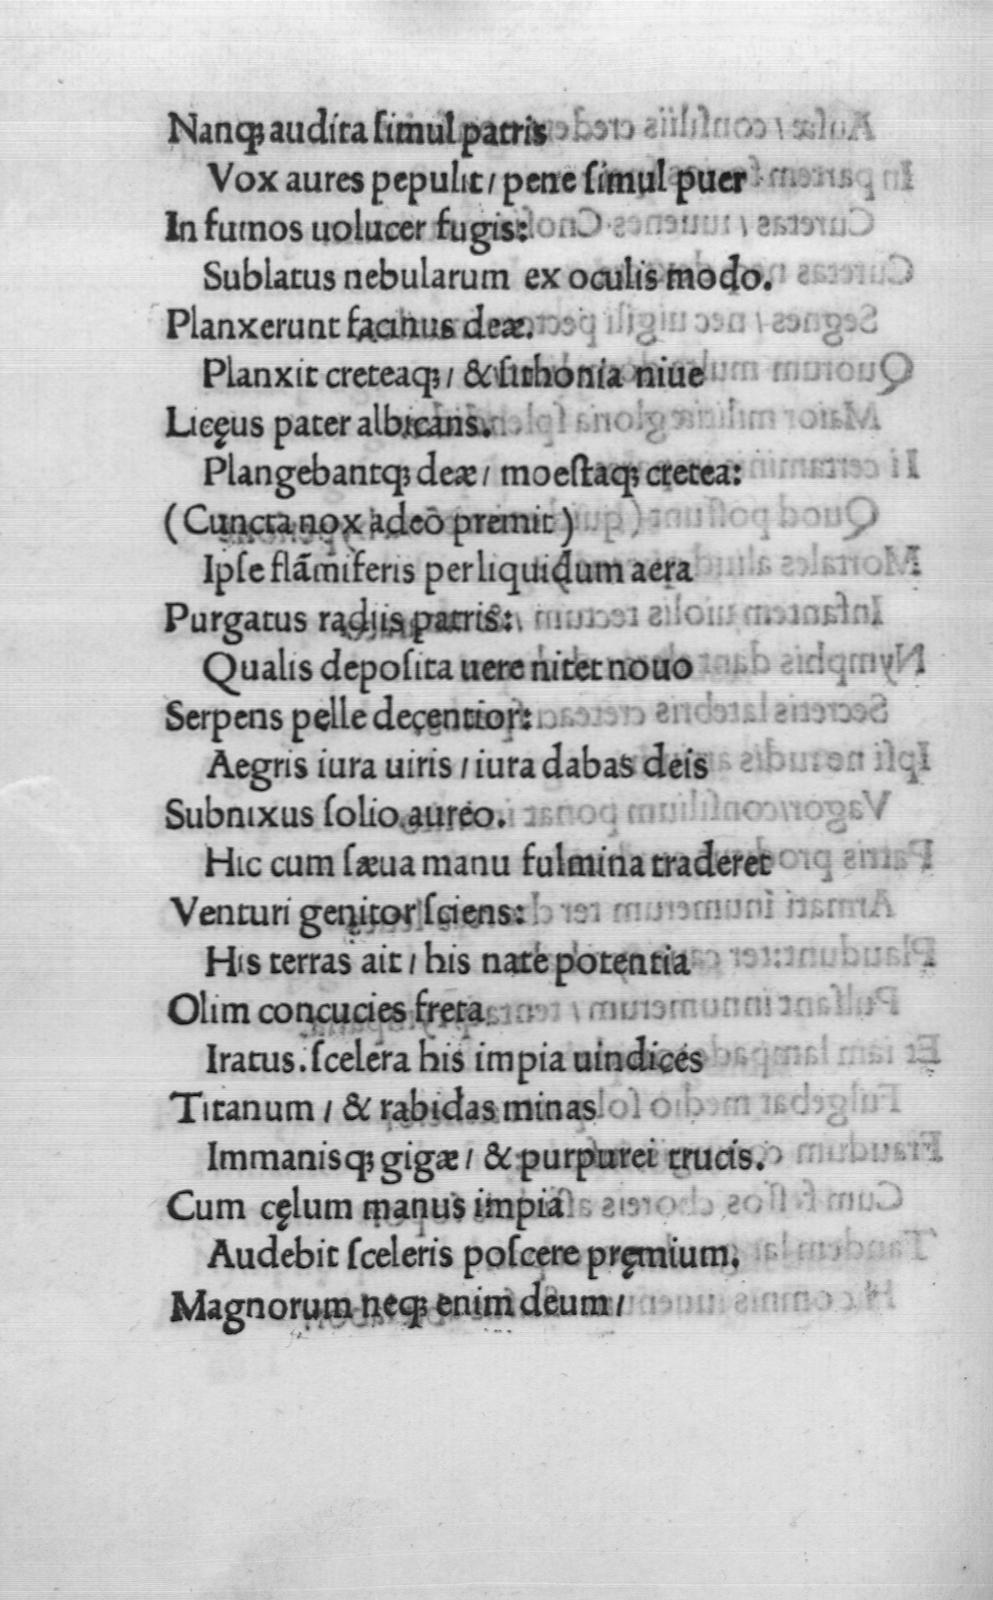 Nanqꝫ audita ſimul patris
Vox aures pepulit / pene ſimul puer
In fumos uolucer fugis:
Sublatus nebularum ex oculis modo.
Planxerunt facinus deæ.
Planxit creteaqꝫ / & ſithonia niue
Licęus pater albicans.
Plangebantqꝫ deæ / moeſtaqꝫ cretea:
(Cuncta nox adeo premit)
Ipſe flãmiferis per liquidum aera
Purgatus radiis patris:
Qualis depoſita uere nitet nouo
Serpens pelle decentior:
Aegris iura uiris / iura dabas deis
Subnixus ſolio aureo.
Hic cum ſæua manu fulmina traderet
Venturi genitor ſciens:
His terras ait / his nate potentia
Olim concucies freta
Iratus. ſcelera his impia uindices
Titanum / & rabidas minas
Immanisqꝫ gigæ / & purpurei trucis.
Cum cęlum manus impia
Audebit ſceleris poſcere pręmium.
Magnorum neqꝫ enim deum /